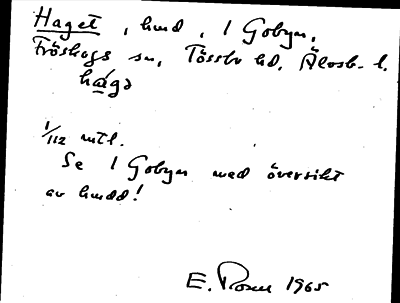 Haget, hmd, 1 Gobyn,
Fröskogs sn, Tössbo hd, Älvsb. l.
hágə
1/112 mtl.
Se 1 Gobyn med översikt
av hmdd!
E. Rosen 1965